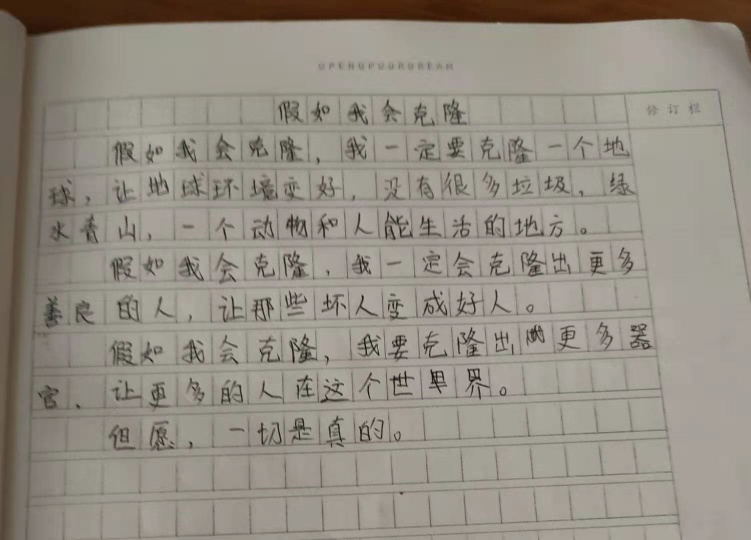 OPENUPYOURDREAM
假如我会克隆
修订栏
假如我会克隆，我一定要克隆一个地
球，让地球环境变好，没有很多垃圾，绿
水青山，一个动物和人能生活的地方。
假如我会克隆，我一定会克隆出更多
善良的人，让那些坏人变成好人。
假如我会克隆，我要克隆出更多器
官、让更多的人在这个世界。
但愿，一切是真的。